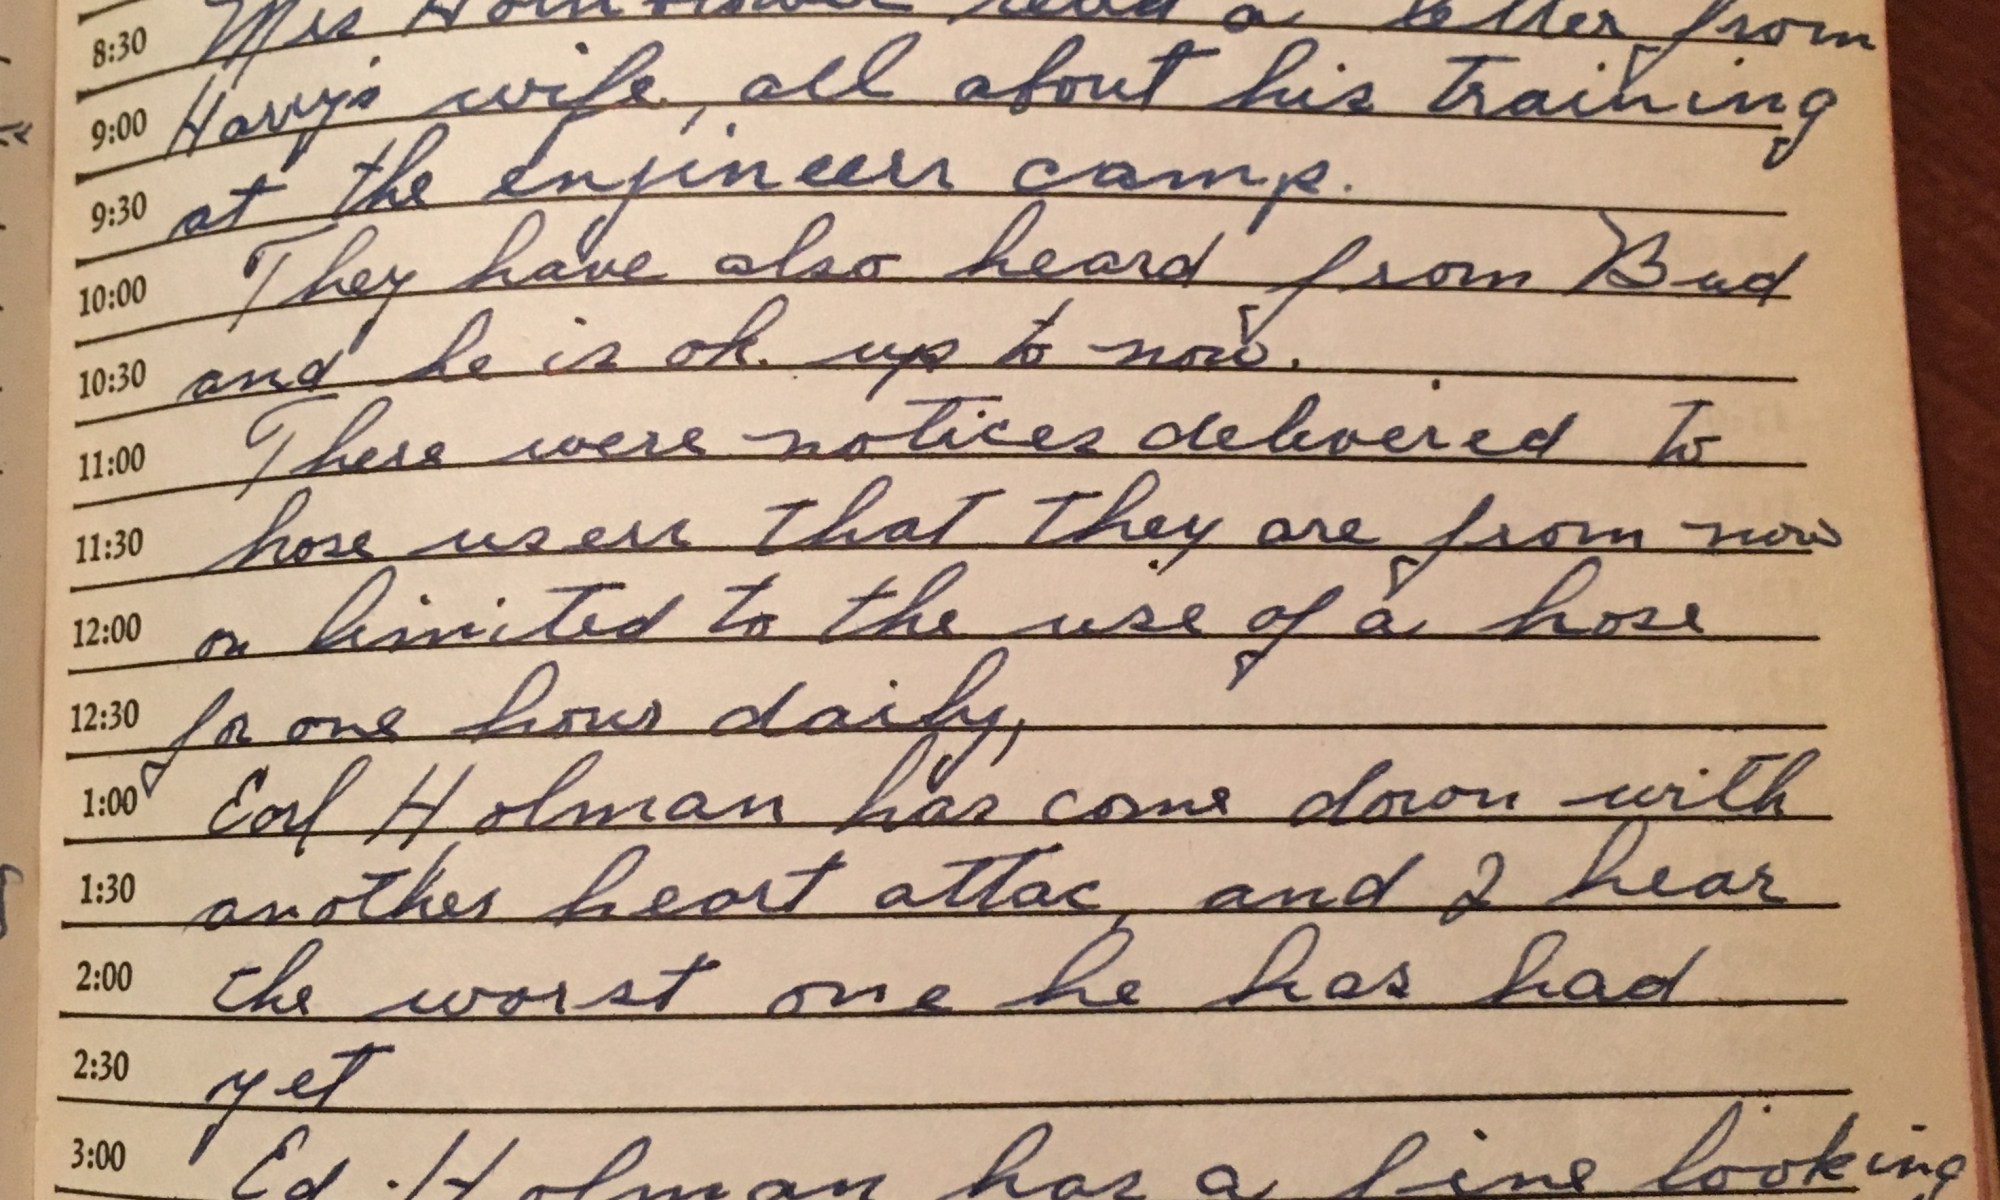 8:30 Mrs read a letter from
9:00 Harry's wife, all about his training
9:30 at the engineers camp.
10:00 They have also heard from Bud
10:30 and he is ok. up to now.
11:00 There were notices delivered to
11:30 hose users that they are from now
12:00 on limited to the use of a hose
12:30 for one hour daily,
1:00 Earl Holman has come down with
1:30 another heart attac, and I hear
2:00 the worst one he has had
2:30 yet
3:00 Ed. Holman has a fine looking